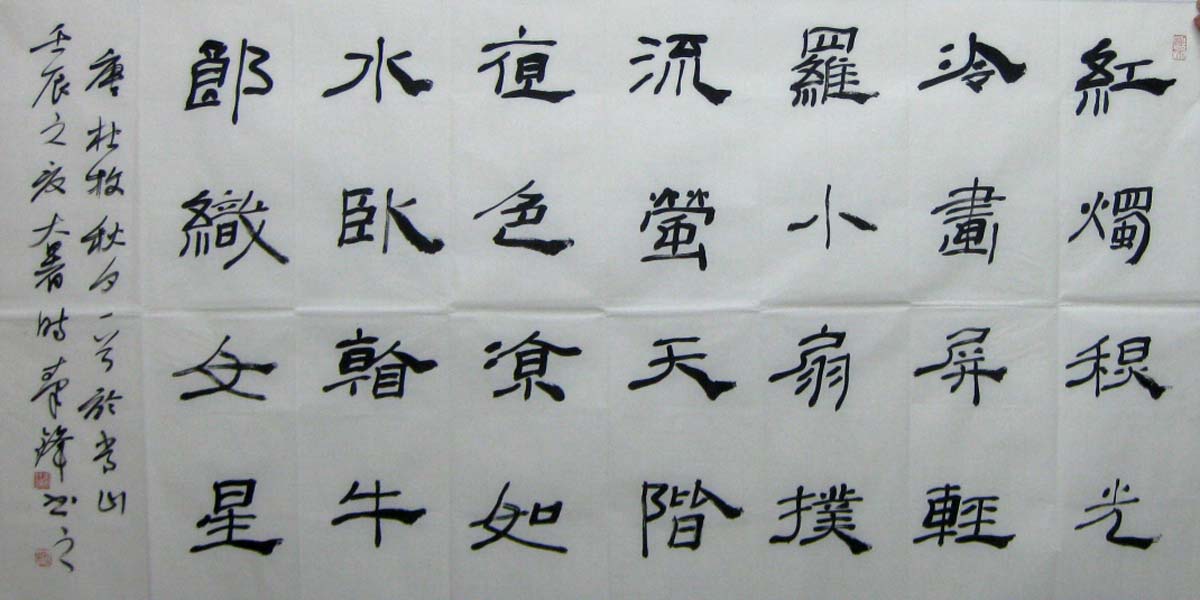 紅燭秋光
冷畫屏輕
羅小扇撲
流螢天階
夜色涼如
水臥看牛
郎織女星
唐杜牧秋夕一首於嵩山
壬辰之夏大暑時秦鋒書之